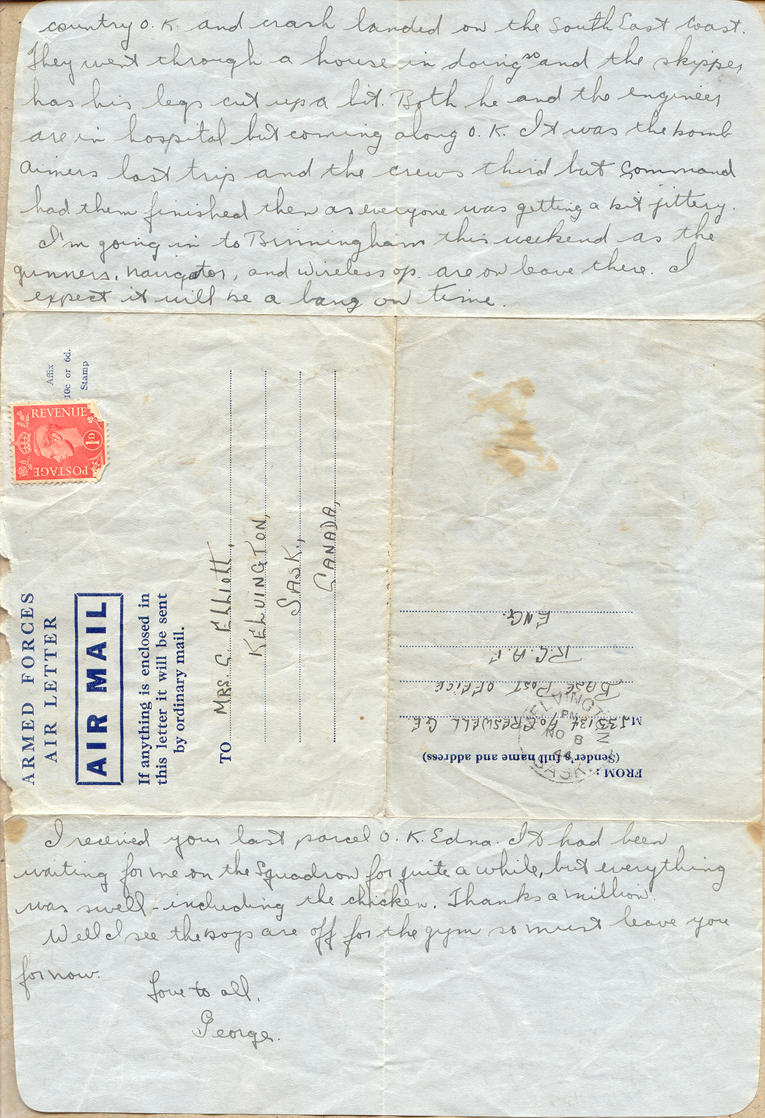 country O.K. and crash landed on the South East Coast.
They went through a house in doing so and the skipper
has his legs cut up a bit. Both he and the engineer
are in hospital but coming along O.K. It was the bomb
aimers last trip and the crews third but Command
had them finished then as everyone was getting a bit jittery.
I'm going in to Birmingham this weekend as the
gunners, navigator, and wireless op. are on leave there. I
expect it will be a bang on time.
Affix
10c or 6d.
Stamp
REVENUE
1D
POSTAGE
ARMED FORCES
AIR LETTER
AIR MAIL
If anything is enclosed in
this letter it will be sent
by ordinary mail.
TO MRS. G. ELLIOTT,
KELVINGTON,
SASK.,
CANADA,
FROM:
(Sender's full name and address)
CRESWELL G.E.
BASE POST OFFICE
R.C.A.F.
ENG.
KELVINGTON
PM
NO 8
44
SASK.
I received your last parcel O.K. Edna. It had been
waiting for me on the Squadron for quite a while, but everything
was swell - including the chicken. Thanks a million.
Well I see the boys are off for the gym so must leave you
for now.
Love to all,
George.